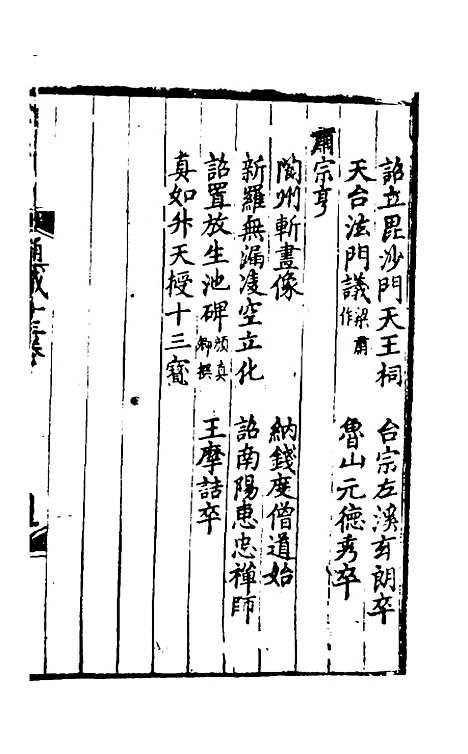 詔立毘沙門天王祠　台宗左溪玄朗卒
天台法門議梁肅作　魯山元德秀卒
肅宗亨
閬州斬畫像　納錢度僧道始
新羅無漏淩空立化　詔南陽惠忠禪師
詔置放生池碑顔真卿撰　王摩詰卒
真如升天授十三寳
通載十三卷